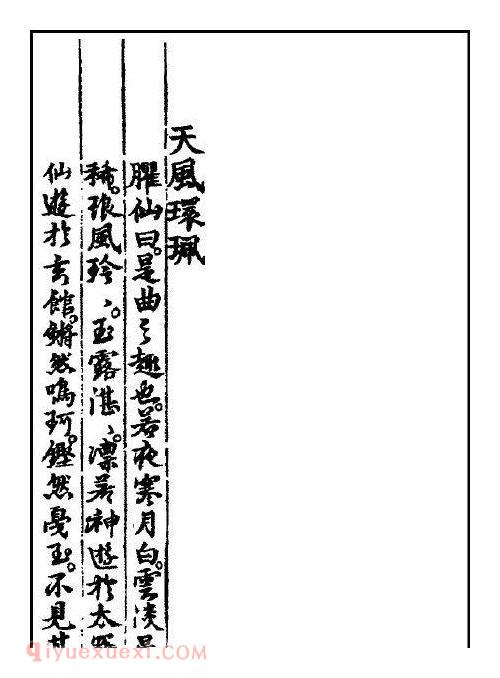 天風環珮
臞仙曰。是曲之趣也。若夜寒月白。雲淡星
稀。琅風玲、。玉露湛、。凛若神遊於太
仙遊於玄館。鏘然鳴珂。鏗然戛玉。不見其
qiyuexuexi.com